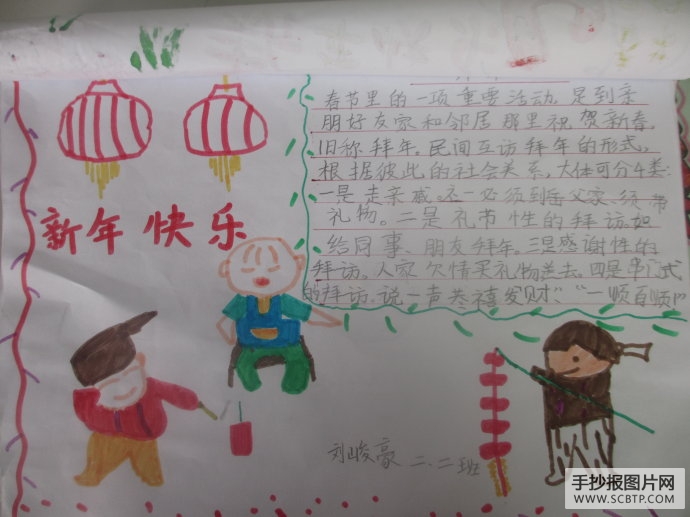 春节里的一项重要活动，是到亲
朋好友家和邻居那里祝贺新春，
旧称拜年。民间互访拜年的形式，
根据彼此的社会关系，大体可分4类：
一是走亲戚。初一必须到岳父家，须带
礼物。二是礼节性的拜访。如
给同事、朋友拜年。三是感谢性的
拜访。人家欠情买礼物送去。四是串门式
的拜访。说一声恭禧发财”、“一顺百顺”
新年快乐
刘峻豪 二.二班
手抄报图片网
WWW.SCBTP.COM